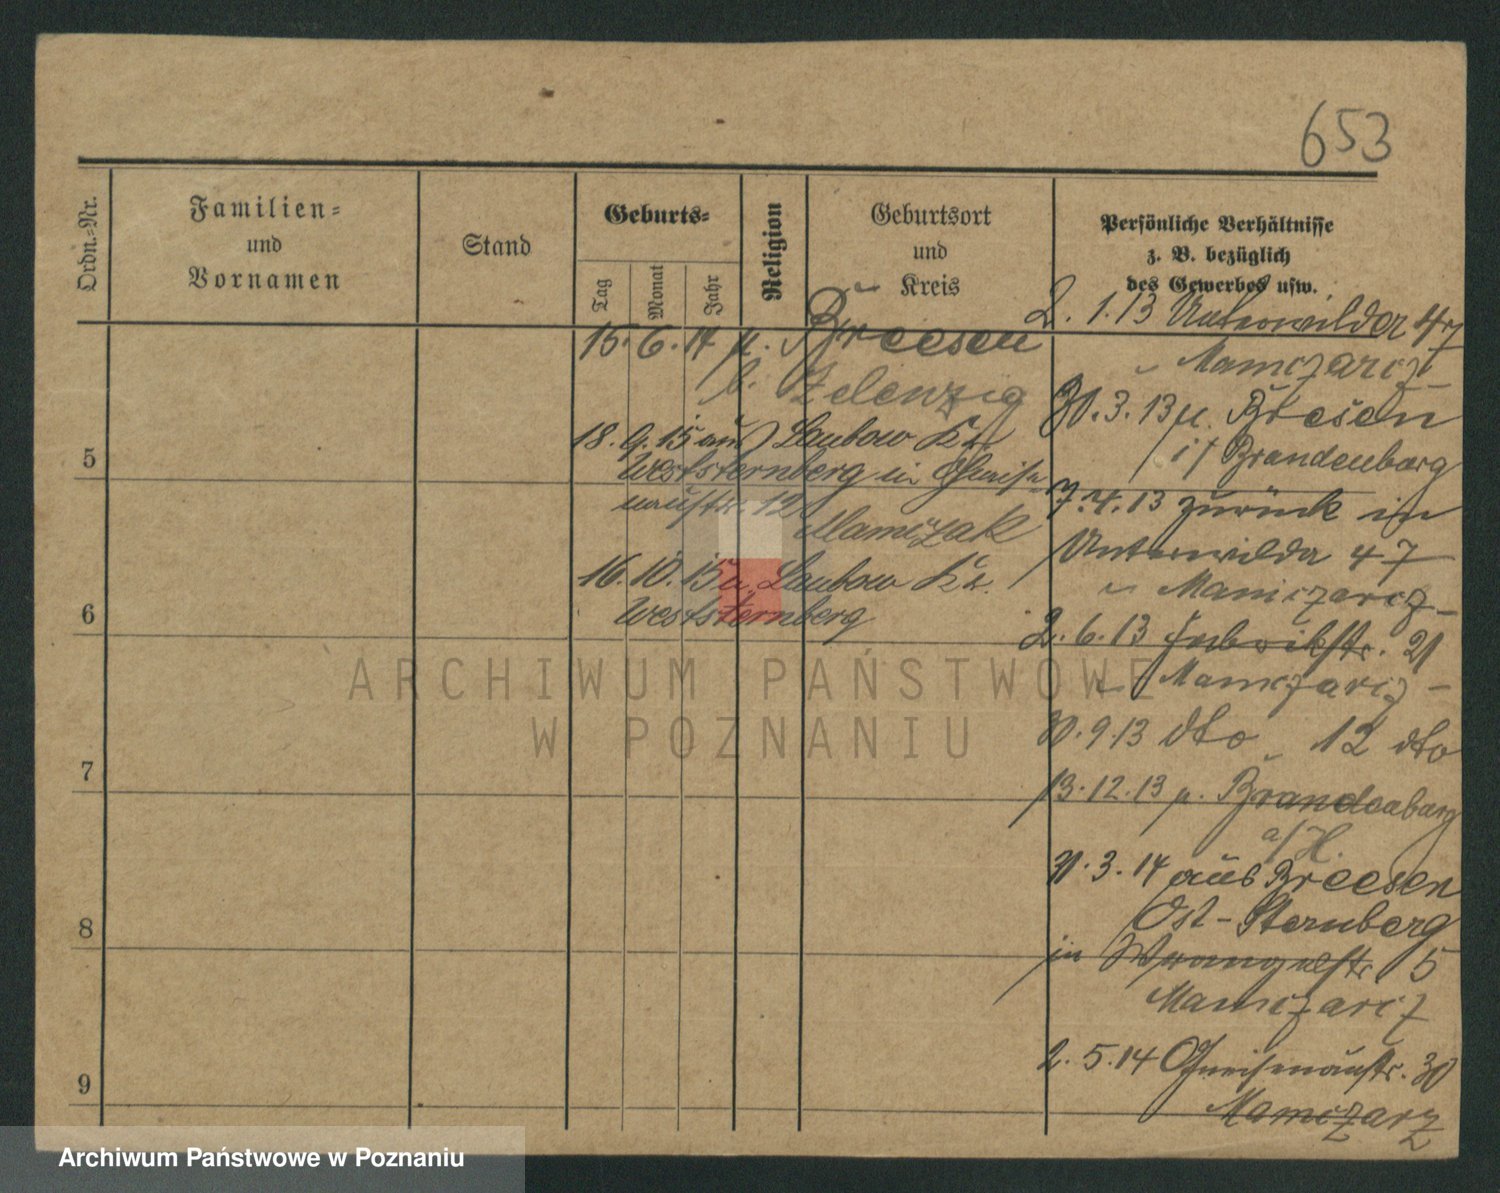 653
Ordn.-Nr.
Familien-
und
Vornamen
Stand
Geburts-
Tag
Monat
Jahr
Religion
Geburtsort
und
Kreis
Persönliche Verhältnisse
z. B. bezüglich
des Gewerbes usw.
15. 6. 14 n. Breesen
b. Zelenzig
18. 9. 15 aus Laubow Kr.
Weststernberg in Gneise-
naustr. 12
Mamczak
16. 10. 15 n. Laubow Kr.
Weststernberg
5
6
7
8
9
2. 1. 13 Unterwilda 47
Mamczarcz
30. 3. 13 n. Breesen
i/ Brandenburg
7. 4. 13 zurück in
Unterwilda 47
Mamczarcz
2. 6. 13 Fabrikstr. 21
Mamczarcz
30. 9. 13 dto 12 dto
13. 12. 13 n. Brandenburg
a/H.
31. 3. 14 aus Breesen
Ost-Sternberg
in Wrangelstr. 5
Mamczarcz
2. 5. 14 Gneisenaustr. 30
Mamczarz
ARCHIWUM PAŃSTWOWE
W POZNANIU
Archiwum Państwowe w Poznaniu